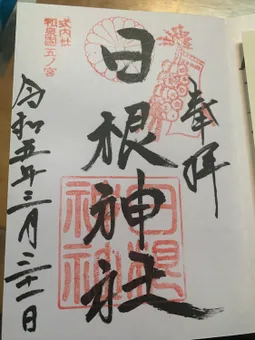 奉拝
式内社
和泉國五ノ宮
日根神社
日根
神社
令和五年三月三十一日